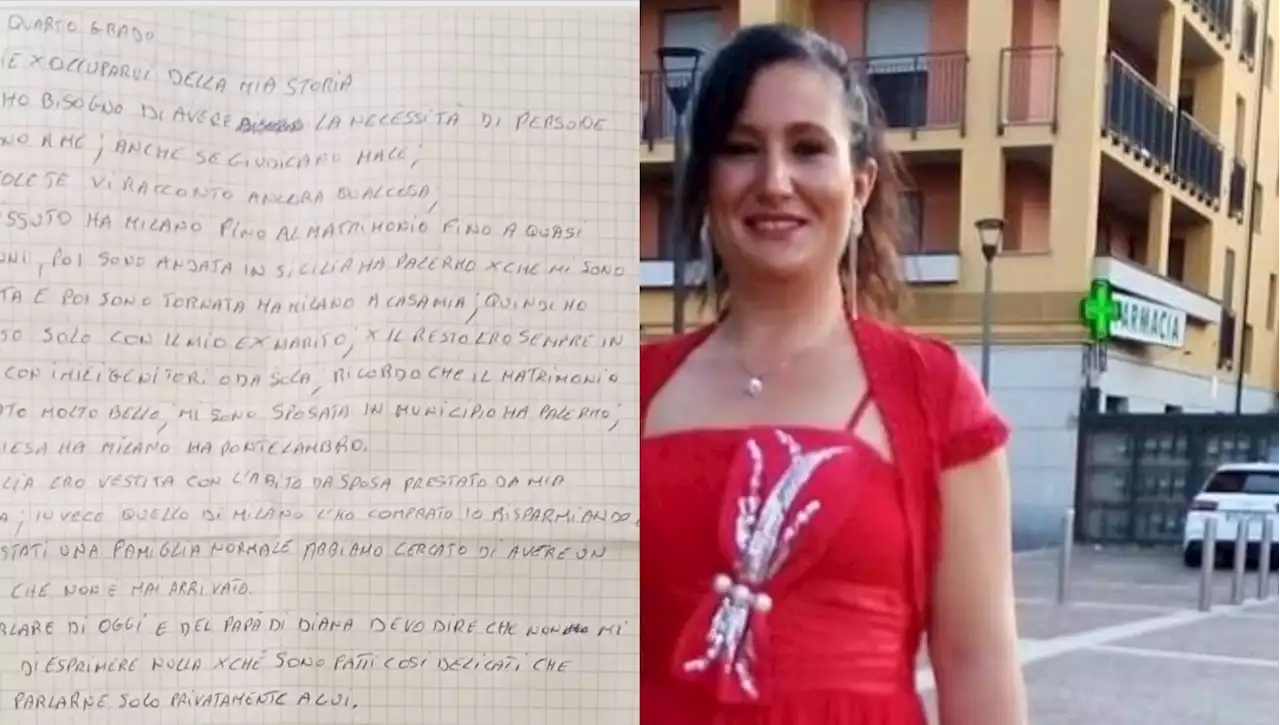 QUARTO GRADO
E X OCCUPARVI DELLA MIA STORIA
HO BISOGNO DI AVERE LA NECESSITÀ DI PERSONE
NO A ME; ANCHE SE GIUDICANO MALE;
OLETE VI RACCONTO ANCORA QUALCOSA;
ISSUTO HA MILANO FINO AL MATRIMONIO FINO A QUASI
NI, POI SONO ANDATA IN SICILIA HA PALERMO XCHE MI SONO
TA E POI SONO TORNATA HA MILANO A CASA MIA; QUINDI HO
SO SOLO CON IL MIO EX MARITO; X IL RESTO ERO SEMPRE IN
CON I MIEI GENITORI O DA SOLA, RICORDO CHE IL MATRIMONIO
TO MOLTO BELLO, MI SONO SPOSATA IN MUNICIPIO HA PALERMO;
IESA HA MILANO HA PONTELAMBRO.
LIA ERO VESTITA CON L'ABITO DA SPOSA PRESTATO DA MIA
A; INVECE QUELLO DI MILANO L'HO COMPRATO IO RISPARMIANDO
STATI UNA FAMIGLIA NORMALE ABBIAMO CERCATO DI AVERE UN
CHE NON E MAI ARRIVATO.
RLARE DI OGGI E DEL PAPÀ DI DIANA DEVO DIRE CHE NON MI
DI ESPRIMERE NULLA XCHÉ SONO FATTI COSI DELICATI CHE
PARLARNE SOLO PRIVATAMENTE A LUI.
FARMACIA